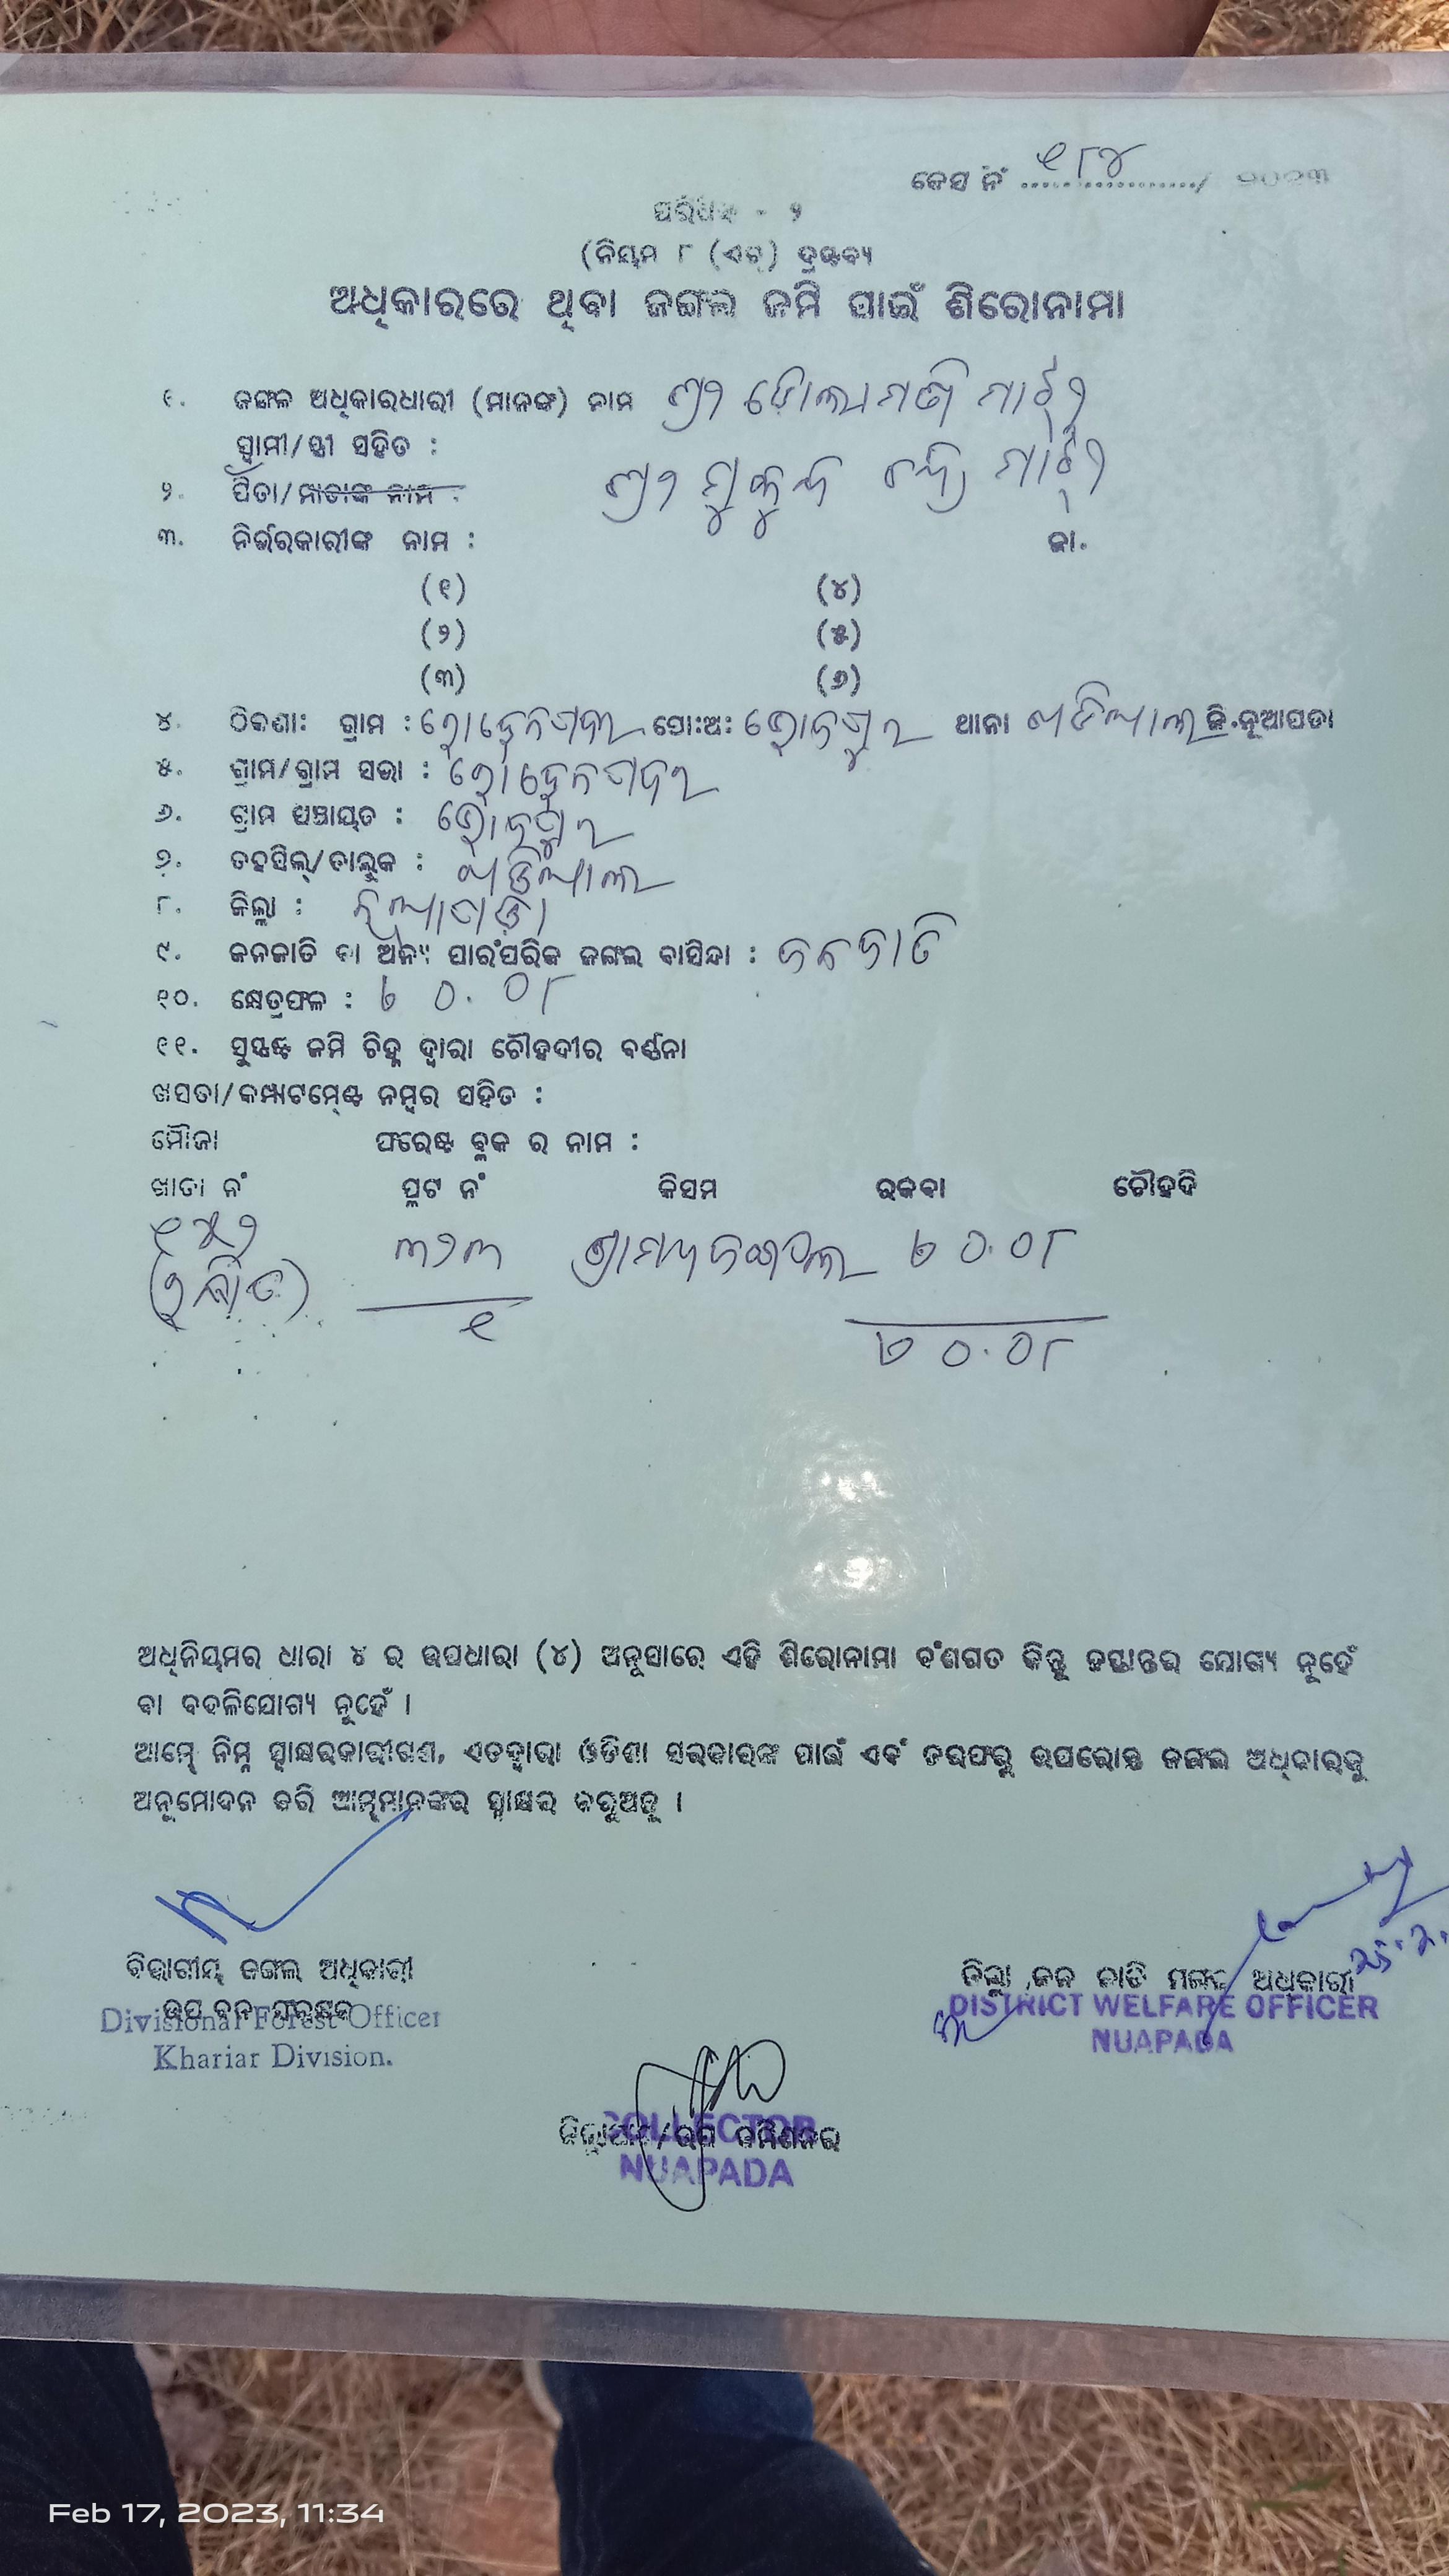 କେସ ନଂ ୧୮୪ / ୨୦୨୩
ପରିଶିଷ୍ଟ - ୨
(ନିୟମ ୮ (ଏଚ୍) ଦ୍ରଷ୍ଟବ୍ୟ
ଅଧିକାରରେ ଥିବା ଜଙ୍ଗଲ ଜମି ପାଇଁ ଶିରୋନାମା
୧. ଜଙ୍ଗଲ ଅଧିକାରଧାରୀ (ମାନଙ୍କ) ନାମ ଶ୍ରୀ ମାଝୀ
ସ୍ୱାମୀ/ସ୍ତ୍ରୀ ସହିତ :
୨. ପିତା/ମାତାଙ୍କ ନାମ : ଶ୍ରୀ ମାଝୀ
୩. ନିର୍ଭରକାରୀଙ୍କ ନାମ : ଜା.
(୧) (୪)
(୨) (୫)
(୩) (୬)
୪. ଠିକଣା: ଗ୍ରାମ : ପୋ:ଅ: ଭୋଜପୁର ଥାନା ଖଡିଆଳ ଜି.ନୂଆପଡା
୫. ଗ୍ରାମ/ଗ୍ରାମ ସଭା :
୬. ଗ୍ରାମ ପଞ୍ଚାୟତ : ଭୋଜପୁର
୭. ତହସିଲ୍/ତାଲୁକ : ଖଡିଆଳ
୮. ଜିଲ୍ଲା : ନୂଆପଡ଼ା
୯. ଜନଜାତି ବା ଅନ୍ୟ ପାରଂପରିକ ଜଙ୍ଗଲ ବାସିନ୍ଦା : ଜନଜାତି
୧୦. କ୍ଷେତ୍ରଫଳ : ୦.୦୮
୧୧. ସୁସ୍ପଷ୍ଟ ଜମି ଚିହ୍ନ ଦ୍ୱାରା ଚୌହଦୀର ବର୍ଣ୍ଣନା
ଖସଡା/କମ୍ପାଟମେଣ୍ଟ ନମ୍ବର ସହିତ :
ମୌଜା ଫରେଷ୍ଟ ବ୍ଲକ ର ନାମ :
ଖାତା ନଂ ପ୍ଲଟ ନଂ କିସମ ରକବା ଚୌହଦି
୧୪୨ ୩୨୩ ଗ୍ରାମ୍ୟଜଙ୍ଗଲ ୦.୦୮
୧ ୦.୦୮
ଅଧିନିୟମର ଧାରା ୪ ର ଉପଧାରା (୪) ଅନୁସାରେ ଏହି ଶିରୋନାମା ବଂଶଗତ କିନ୍ତୁ ହସ୍ତାନ୍ତର ଯୋଗ୍ୟ ନୁହେଁ
ବା ବଦଳିଯୋଗ୍ୟ ନୁହେଁ ।
ଆମ୍ଭେ ନିମ୍ନ ସ୍ୱାକ୍ଷରକାରୀଗଣ, ଏତଦ୍ୱାରା ଓଡିଶା ସରକାରଙ୍କ ପାଇଁ ଏବଂ ତରଫରୁ ଉପରୋକ୍ତ ଜଙ୍ଗଲ ଅଧିକାରକୁ
ଅନୁମୋଦନ କରି ଆମ୍ଭମାନଙ୍କର ସ୍ୱାକ୍ଷର କରୁଅଛୁ ।
ବିଭାଗୀୟ ଜଙ୍ଗଲ ଅଧିକାରୀ
ଉପ ବନ ସଂରକ୍ଷକ
Divisional Forest Officer
Khariar Division.
ଜିଲ୍ଲା ଜନ ଜାତି ମଙ୍ଗଳ ଅଧିକାରୀ
DISTRICT WELFARE OFFICER
NUAPADA
ଜିଲ୍ଲାପାଳ/ଉପ କମିଶନର
COLLECTOR
NUAPADA
Feb 17, 2023, 11:34